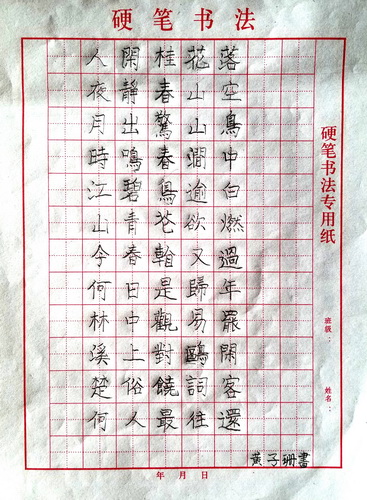 硬笔书法
人閑桂花落
夜靜春山空
月出驚山鳥
時鳴春澗中
江碧鳥逾白
山青花欲燃
今春看又過
何日是歸年
林中觀易罷
溪上對鷗閑
楚俗饒詞客
何人最往還
黄子珊書
硬笔书法专用纸
班级：
姓名：
年月日